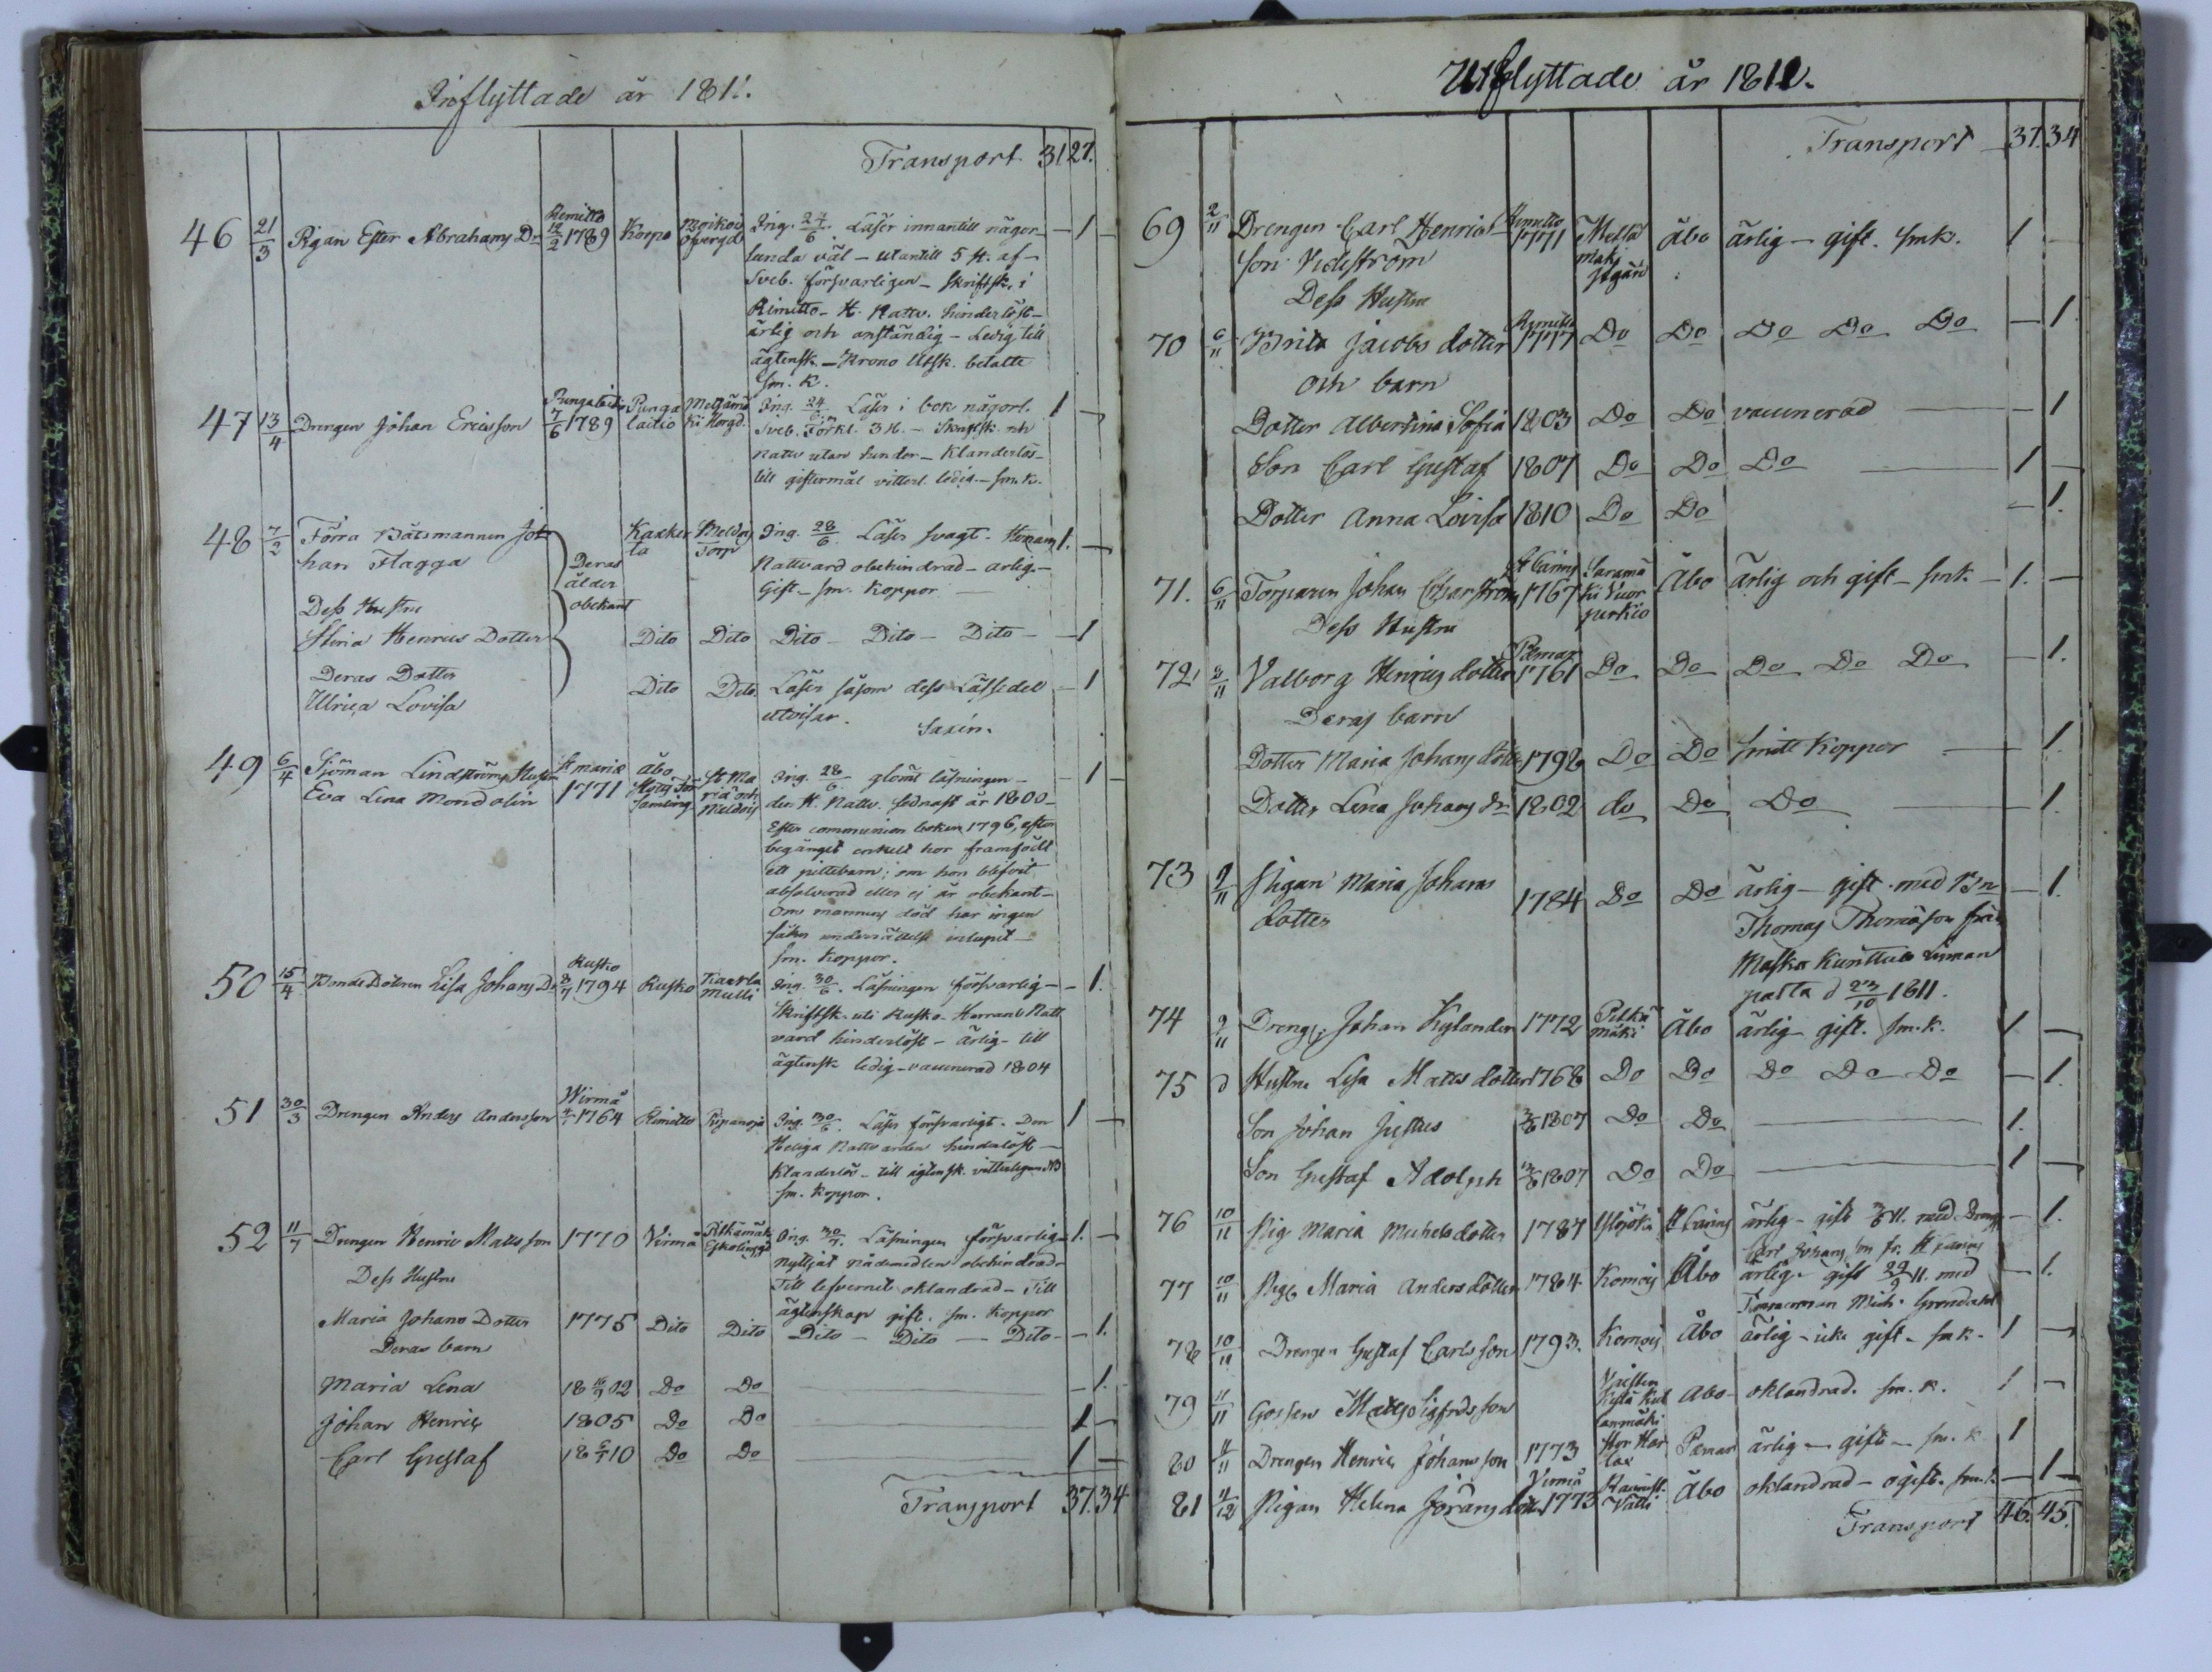 Inflyttade år 1811.
Transport 31. 27.
46 21/3 Pigan Ester Abrahams Dr Rimitto 12/2 1789 Korpo Moikois öfvergd Ing. 24/6. Läser innantill någor- — 1 —
lunda väl — utantill 5 st. af
Sveb. försvarligen — skriftsk. i
Rimitto — H. Nattv. hinderlöst —
ärlig och anständig — Ledig till
ägtensk — Krono Utsk. betalte
sm. K.
47 13/4 Drengen Johan Ericsson 7/6 1789 Punga laitio Ing. 24/6. Läser i bok någorl. 1 —
Sveb. Förkl. 3 st. — Skriftsk. och
nattv utan hinder — Klanderlös —
till giftermål vitterl. ledig — sm. K.
48 7/2 Förra Båtsmannen Jo- Kaxker ta Meldois Torp Ing. 28/6. Läser svagt. Herrans 1. —
han Flagga Deras ålder obekant Nattvard obehindrad — ärlig —
Gift — sm. Koppor —
Dess Hustru
Stina Henrics Dotter Dito Dito Dito — Dito — Dito — — 1
Deras Dotter Dito Dito Läser såsom dess Låssedel — 1
Ulrica Lovisa utvisar. Saxén.
49 6/4 Sjöman Lindströms Hustru St Mariæ Åbo Ing. 28/6 glömt läsningen — — 1 —
Eva Lena Mondolin 1771 Sv. För samling St Ma riæ och Meldois den H. Nattv. sednast år 1800 —
Efter communion boken 1796, efter
begånget enkelt hor framfödt
ett gittebarn; om hon blifvit
absolverad eller ej är obekant —
Om mannens död har ingen
säker underrättelse inlupit —
sm. Koppor.
50 15/4 Bonde Dottren Lisa Johans Dr Rusko 8/7 1794 Rusko Kaerla Mulli Ing. 30/6. Läsningen försvarlig — — 1.
Skriftsk. uti Rusko — Herrans Natt
vard hinderlöst — ärlig — till
ägtensk. ledig — vaccinerad 1804
51 30/3 Drengen Anders Andersson Wirmå 1764 Rimitto Kipanoja Ing. 30/6. Läser försvarligt. Den 1 —
Heliga Nattvarden hinderlöst —
Klanderlös — till ägtensk. vitterligen
sm. Koppor.
52 11/7 Drengen Henric Mattsson 1770 Virmå Pitkämäki Ing. 30/7. Läsningen försvarlig — 1. —
nyttjat nådemedlen obehindrad
Dess Hustru Till lefvernet oklandrad — Till
ägtenskap gift. sm. Koppor
Maria Johans Dotter 1775 Dito Dito Dito — Dito — Dito — — 1.
Deras barn
Maria Lena 18 16/7 02 Do Do — 1.
Johan Henric 1805 Do Do 1 —
Carl Gustaf 18 6/7 10 Do Do 1 —
Transport 37. 34
Utflyttade år 1811.
Transport 37. 34
69 2/11 Drengen Carl Henrics- Rimitto 1771 Åbo ärlig — gift. smk. 1 —
son Vidström
Dess Hustru
70 6/11 Brita Jacobs dotter Rimitto 1777 Do Do Do Do Do — 1.
och barn
Dotter Albertina Sofia 1803 Do Do vaccinerad — — 1
Son Carl Gustaf 1807 Do Do Do — 1 —
Dotter Anna Lovisa 1810 Do Do — 1.
71. 6/11 Torparen Johan Charström St Carins 1767 Saramä ki Vuor purkio Åbo ärlig och gift — smk — 1. —
Dess Hustru
72 Valborg Henrics dotter Pemar 1761 Do Do Do Do Do — 1.
Deras barn
Dotter Maria Johans dotter 1798 Do Do smitt Koppor — 1.
Dotter Lena Johans dr 1802 do Do Do — 1.
73 9/11 Pigan Maria Johans 1784 Do Do ärlig — gift med Bn — 1.
dotter Thomas Thomasson från
Masku Kunttula Liman
patta d 23/10 1811.
74 9/11 Dreng. Johan Kylander 1772 Pitkä mäki Åbo ärlig gift. sm.k. 1 —
75 d Hustru Lisa Matts dotter 1768 Do Do Do Do Do — 1.
Son Johan Justus 1807 Do Do — 1.
Son Gustaf Adolph 1807 Do Do — 1 —
76 10/11 Pig Maria Michels dotter 1787 Ylijoki St Carins ärlig — gift 11. med Dreng — 1.
Carl Johansson fr. St Carins
77 10/11 Pig. Maria Anders dotter 1784 Komois Åbo ärlig — gift 22/9 11. med — 1.
Timmerman Mich. Grondahl
78 10/11 Drengen Gustaf Carlsson 1793. Komois Åbo ärlig — icke gift — smk — 1 —
79 11/11 Gossen Matts Sigfridsson Åbo — oklandrad. sm. k. 1 —
80 11/11 Drengen Henric Johansson 1773 Stor Har tax Pemar ärlig — gift — sm. k 1
81 11/12 Pigan Helena Jörans dotter Virmo 1773 Åbo oklandrad — ogift. smk. — 1 —
Transport 46. 45.